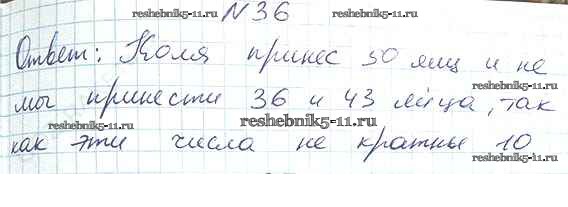 N 36
reshebnik5-11.ru
Ответ: Коля принес 50 яиц и не
reshebnik5-11.ru reshebnik5-11.ru
мог принести 36 и 43 яйца, так
reshebnik5-11.ru reshebnik5-11.ru
reshebnik5-11.ru
как эти числа не кратны 10
reshebnik5-11.ru